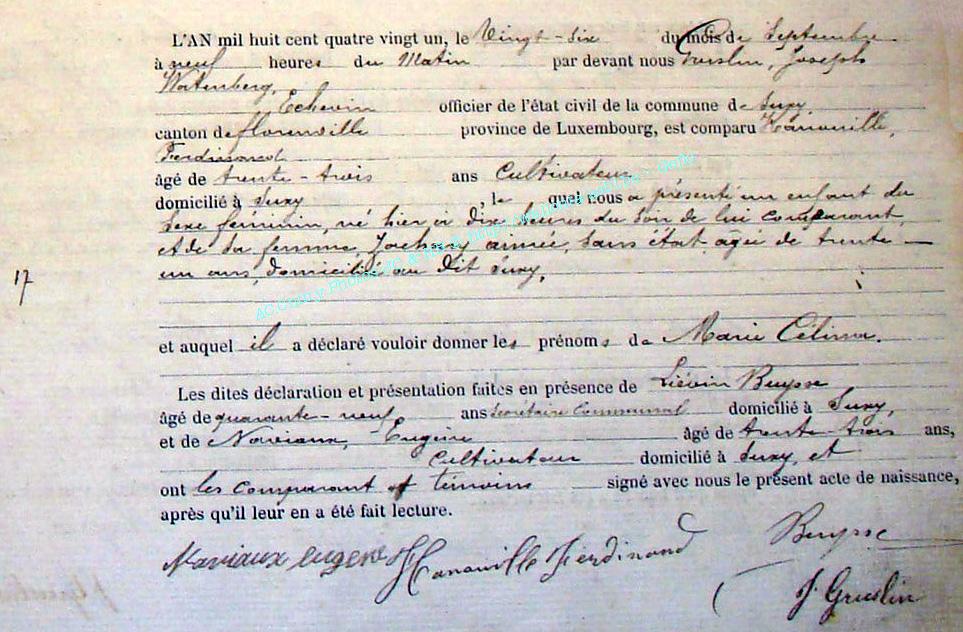 L'AN mil huit cent quatre vingt un, le Vingt-six du mois de Septembre
à neuf heures du Matin par devant nous Gruslin, Joseph
Watenberg,
Echevin officier de l'état civil de la commune de Suxy
canton de florenville province de Luxembourg, est comparu Hanonville,
Ferdinand
âgé de trente-trois ans Cultivateur
domicilié à Suxy , le quel nous a présenté un enfant du
sexe féminin, né hier à dix heures du soir de lui comparant
et de sa femme, Jacham aimée, sans état, agée de trente
un ans, domicilié au dit Suxy,
17
et auquel il a déclaré vouloir donner les prénoms de Marie Célina.
Les dites déclaration et présentation faites en présence de Liévin Buysse
âgé de quarante-neuf ans Secrétaire Communal domicilié à Suxy,
et de Naviaux, Eugène âgé de trente-trois ans,
Cultivateur domicilié à Suxy, et
ont les comparant et témoins signé avec nous le présent acte de naissance,
après qu'il leur en a été fait lecture.
Naviaux eugene Hanonville Ferdinand Buysse
J Gruslin